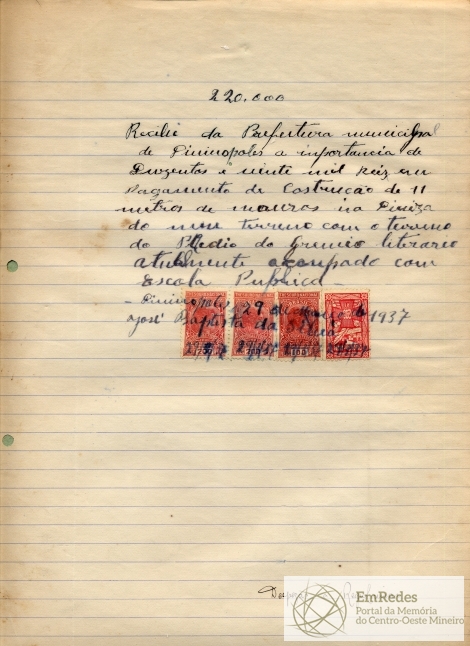 220.000
Recibi da Prefeitura municipal
de Divinopolis a importancia de
Duzentos e vinte mil Reiz em
Pagamento de Costrucção de 11
metros de muros na Diviza
do meu terreno com o terreno
do Predio do Gremio literario
atualmente acoupado com
Escola Publica –
Divinopolis 29 de de 1937
José Baptista da Silva
EmRedes
Portal da Memória
do Centro-Oeste Mineiro